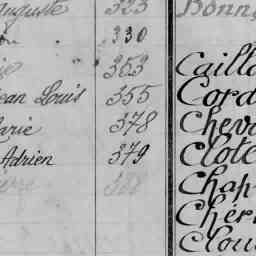 Auguste 323 Bonn
330
353 Caill
Jean Louis 355 Cord
Marie 378 Chev
Adrien 379 Clot
388 Chap
Chér
Clou